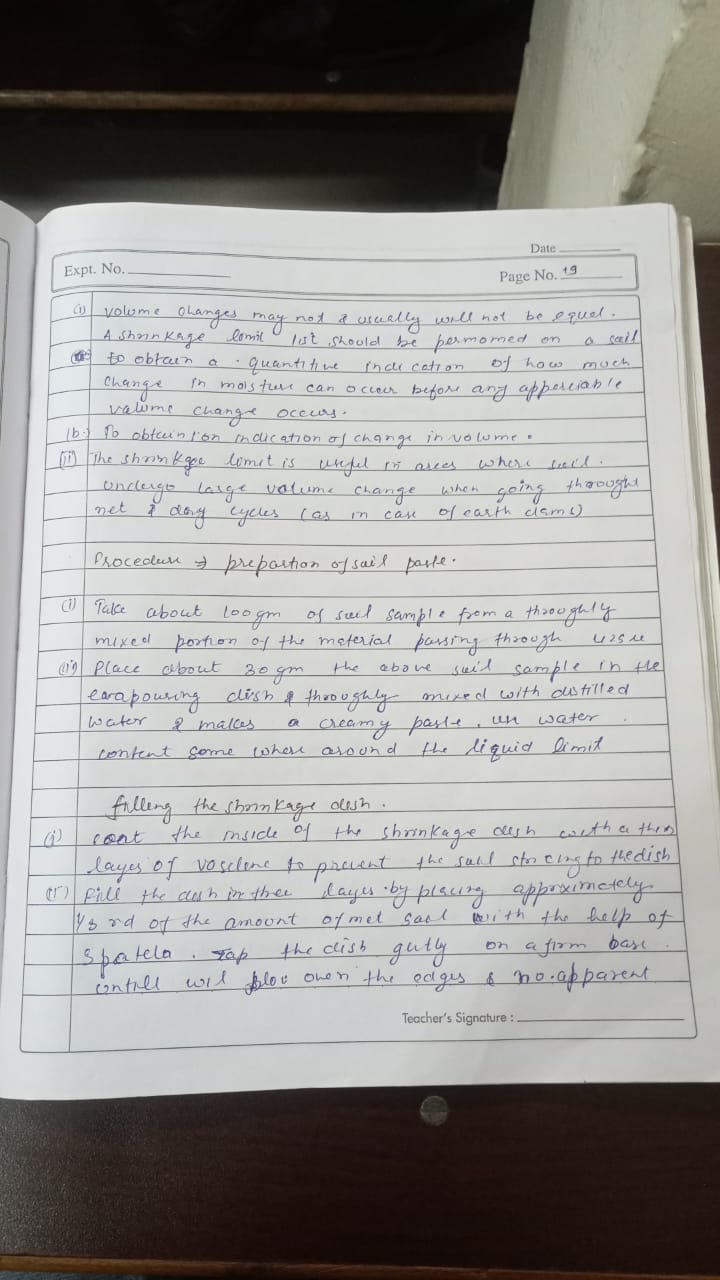 Date
Expt. No.
Page No. 19
(i) volume changes may not & usually will not be equal.
A shrinkage lomit test should be permomed on a sail
to obtain a quantitive indication of how much
change in moisture can occur before any apperciable
valume change occurs.
(b.) To obtain ion indication of change in volume.
(ii) The shrinkage lomit is useful in areas where soil.
undergo large volume change when going throught
net & dary cycles (as in case of earth dams)
Procedure → prepartion of sail paste.
(i) Take about 100gm of soil sample from a throughly
mixed portion of the meterial passing through 425u
(ii) Place about 30 gm the above soil sample in the
evrapouring dish & throughly mixed with distilled
water & makes a creamy paste. un water
content some where around the liquid limit
filleng the shrinkage dish.
(i) coat the inside of the shrinkage dish with a thin
layer of vasclene to prevent the soil sticing to the dish
(ii) Fill the dish in three layes by placing approximetely
1/3 rd of the amount of met soil with the help of
spatela. Tap the dish gutly on a firm base
contill wil flow over the edges & no.apparent
Teacher's Signature :